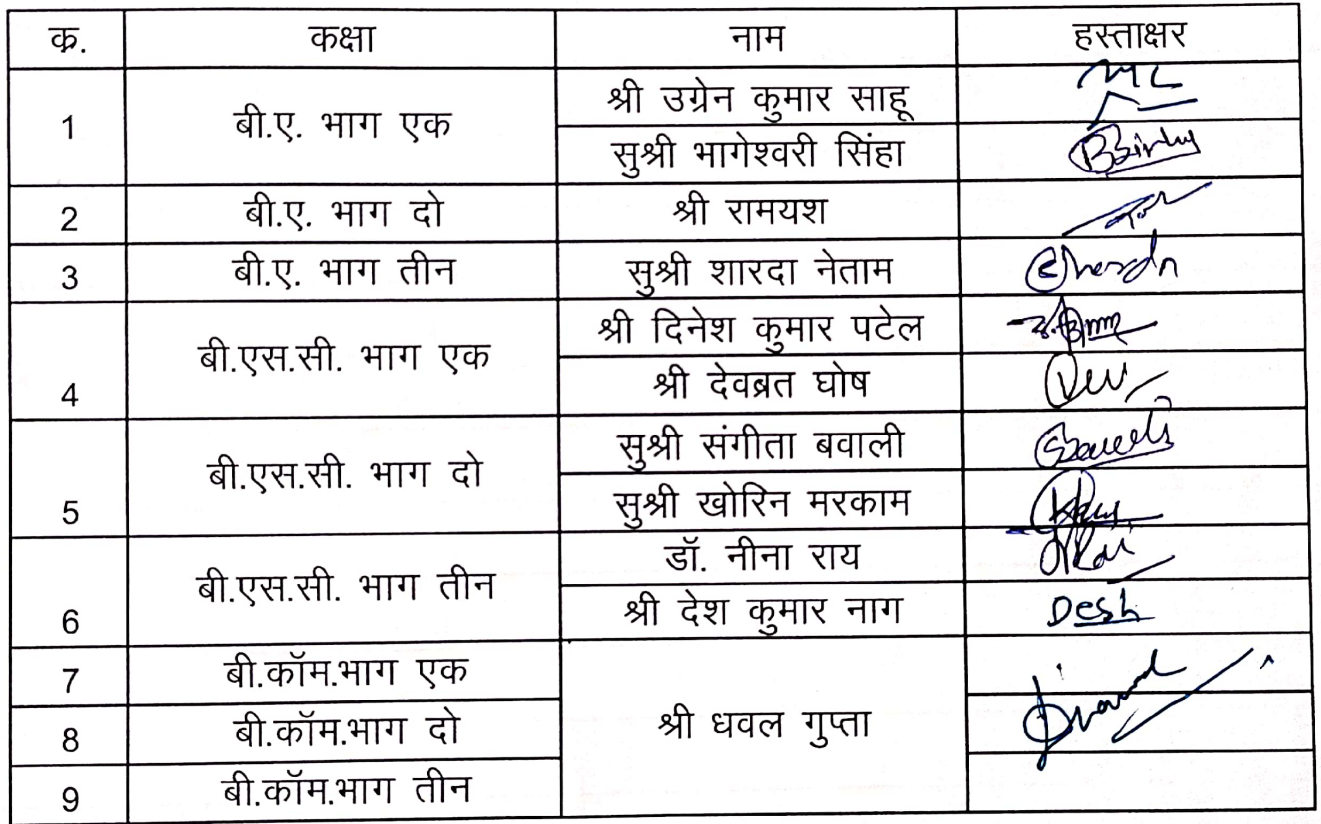 क्र. कक्षा नाम हस्ताक्षर
1 बी.ए. भाग एक श्री उग्रेन कुमार साहू
सुश्री भागेश्वरी सिंहा
2 बी.ए. भाग दो श्री रामयश
3 बी.ए. भाग तीन सुश्री शारदा नेताम
4 बी.एस.सी. भाग एक श्री दिनेश कुमार पटेल
श्री देवब्रत घोष
5 बी.एस.सी. भाग दो सुश्री संगीता बवाली
सुश्री खोरिन मरकाम
6 बी.एस.सी. भाग तीन डॉ. नीना राय
श्री देश कुमार नाग Desh
7 बी.कॉम.भाग एक श्री धवल गुप्ता
8 बी.कॉम.भाग दो
9 बी.कॉम.भाग तीन